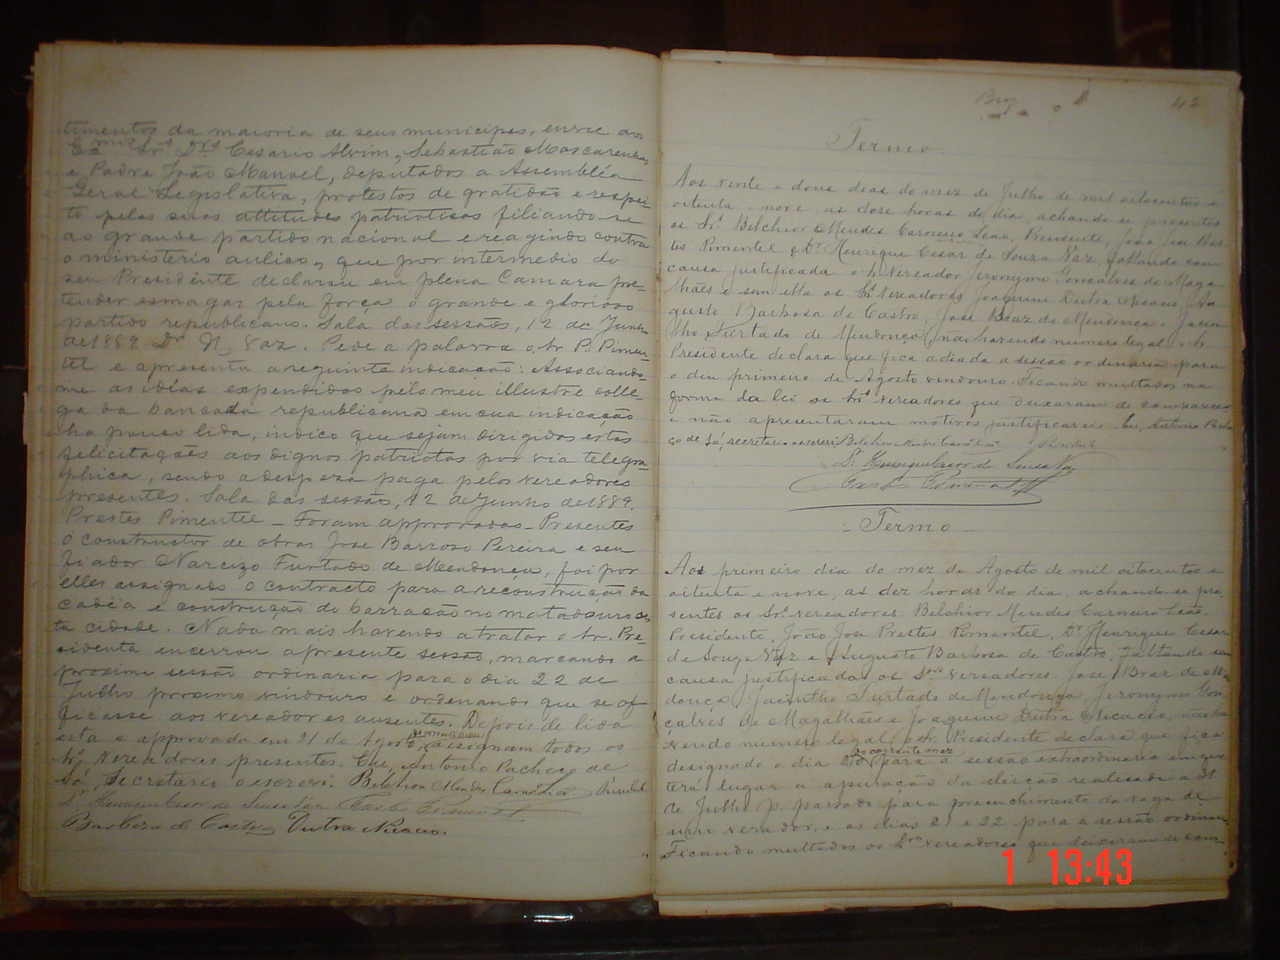 timentos da maioria de seus municipes, envie aos
Ex.mos Srs. Drs. Cesario Alvim, Sebastião Mascarenhas
e Padre João Manoel, deputados a Assembléa
Geral Legislativa, protestos de gratidão e respei-
to pelas suas attitudes patrioticas filiando-se
ao grande partido nacional e reagindo contra
o ministerio aulico, que por intermedio do
seu Presidente declarou em plena Camara pre-
tender esmagar pela força o grande e glorioso
partido republicano. Sala das sessões, 12 de Junho
de 1889 Dr. H. Vaz. Pede a palavra o Sr. P. Pimen-
tel e apresenta a seguinte indicação: Associando-
me as idéas expendidas pelo meu illustre colle-
ga da bancada republicana em sua indicação
ha pouco lida, indico que sejam dirigidas estas
felicitações aos dignos patriotas por via telegra-
phica, sendo a despeza paga pelos vereadores
presentes. Sala das sessões, 12 de Junho de 1889.
Prestes Pimentel – Foram approvadas – Presentes
o constructor de obras José Barroso Pereira e seu
fiador Narcizo Furtado de Mendonça, foi por
elles assignado o contracto para a reconstrucção da
cadêia e construcção do barracão no matadouro des-
ta cidade. Nada mais havendo a tratar o Sr. Pre-
sidente encerrou a presente sessão, marcando a
proxima sessão ordinaria para o dia 22 de
Julho proximo vindouro e ordenando que se of-
ficiasse aos vereadores ausentes. Depois de lida
esta e approvada em 21 de Agosto, assignam todos os
Srs. Vereadores presentes. Eu, Antonio Pacheco de
Sá, Secretario o escrevi. Belchior Mendes Carneiro Presidente
Dr. Henrique Cesar de Souza Vaz
Barboza de Castro Dutra Nicacio.
42
Termo
Aos vinte e dous dias do mez de Julho de mil oitocentos e
oitenta e nove as dose horas do dia, achando-se presentes
os Srs. Belchior Mendes Carneiro Leão, Presidente, João José Pres-
tes Pimentel e Dr. Henrique Cesar de Souza Vaz, faltando com
causa justificada o Sr. Vereador Jeronymo Gonçalves de Maga-
lhães e sem ella os Srs. Vereadores Joaquim Dutra Nicacio, Au-
gusto Barbosa de Castro, José Braz de Mendonça e Jacin-
tho Furtado de Mendonça, não havendo numero legal o Sr.
Presidente declara que fica adiada a sessão ordinaria para
o dia primeiro de Agosto vindouro. Ficando multados na
forma da lei os Srs. Vereadores que deixaram de comparecer
e não apresentaram motivos justificaveis. Eu, Antonio Pache-
co de Sá, secretario o escrevi Belchior Mendes Carneiro Presidente
Dr. Henrique Cesar de Souza Vaz
- Termo -
Aos primeiro dia do mez de Agosto de mil oitocentos e
oitenta e nove, as dez horas do dia, achando-se pre-
sentes os Srs. vereadores Belchior Mendes Carneiro Leão
Presidente, João José Prestes Pimentel, Dr. Henrique Cesar
de Souza Vaz e Augusto Barbosa de Castro, faltando sem
causa justificada os Srs. Vereadores José Braz de Men-
donça, Jacintho Furtado de Mendonça, Jeronymo Gon-
çalves de Magalhães e Joaquim Dutra Nicacio, não ha-
vendo numero legal o Sr. Presidente declara que fica
do corrente mez
designado o dia 20 para a sessão extraordinaria em que
terá lugar a apuração da eleição realisada a 31
de Julho p. passado para preenchimento da vaga de
um vereador, e os dias 21 e 22 para a sessão ordinaria
Ficando multados os Srs. Vereadores que deixaram de com-
1 13:43